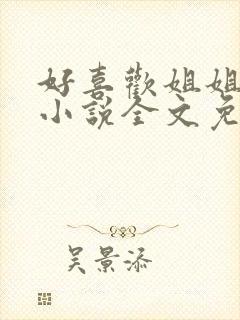 好喜歡姐姐
小說全文免
吴景添